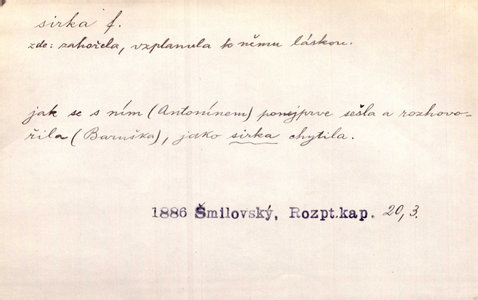 sirka f.
zde: zahořela, vzplanula k němu láskou.
jak se s ním (Antonínem) ponejprve sešla a rozhovo-
řila (Baruška), jako sirka chytila.
1886 Šmilovský, Rozpt.kap. 20,3.